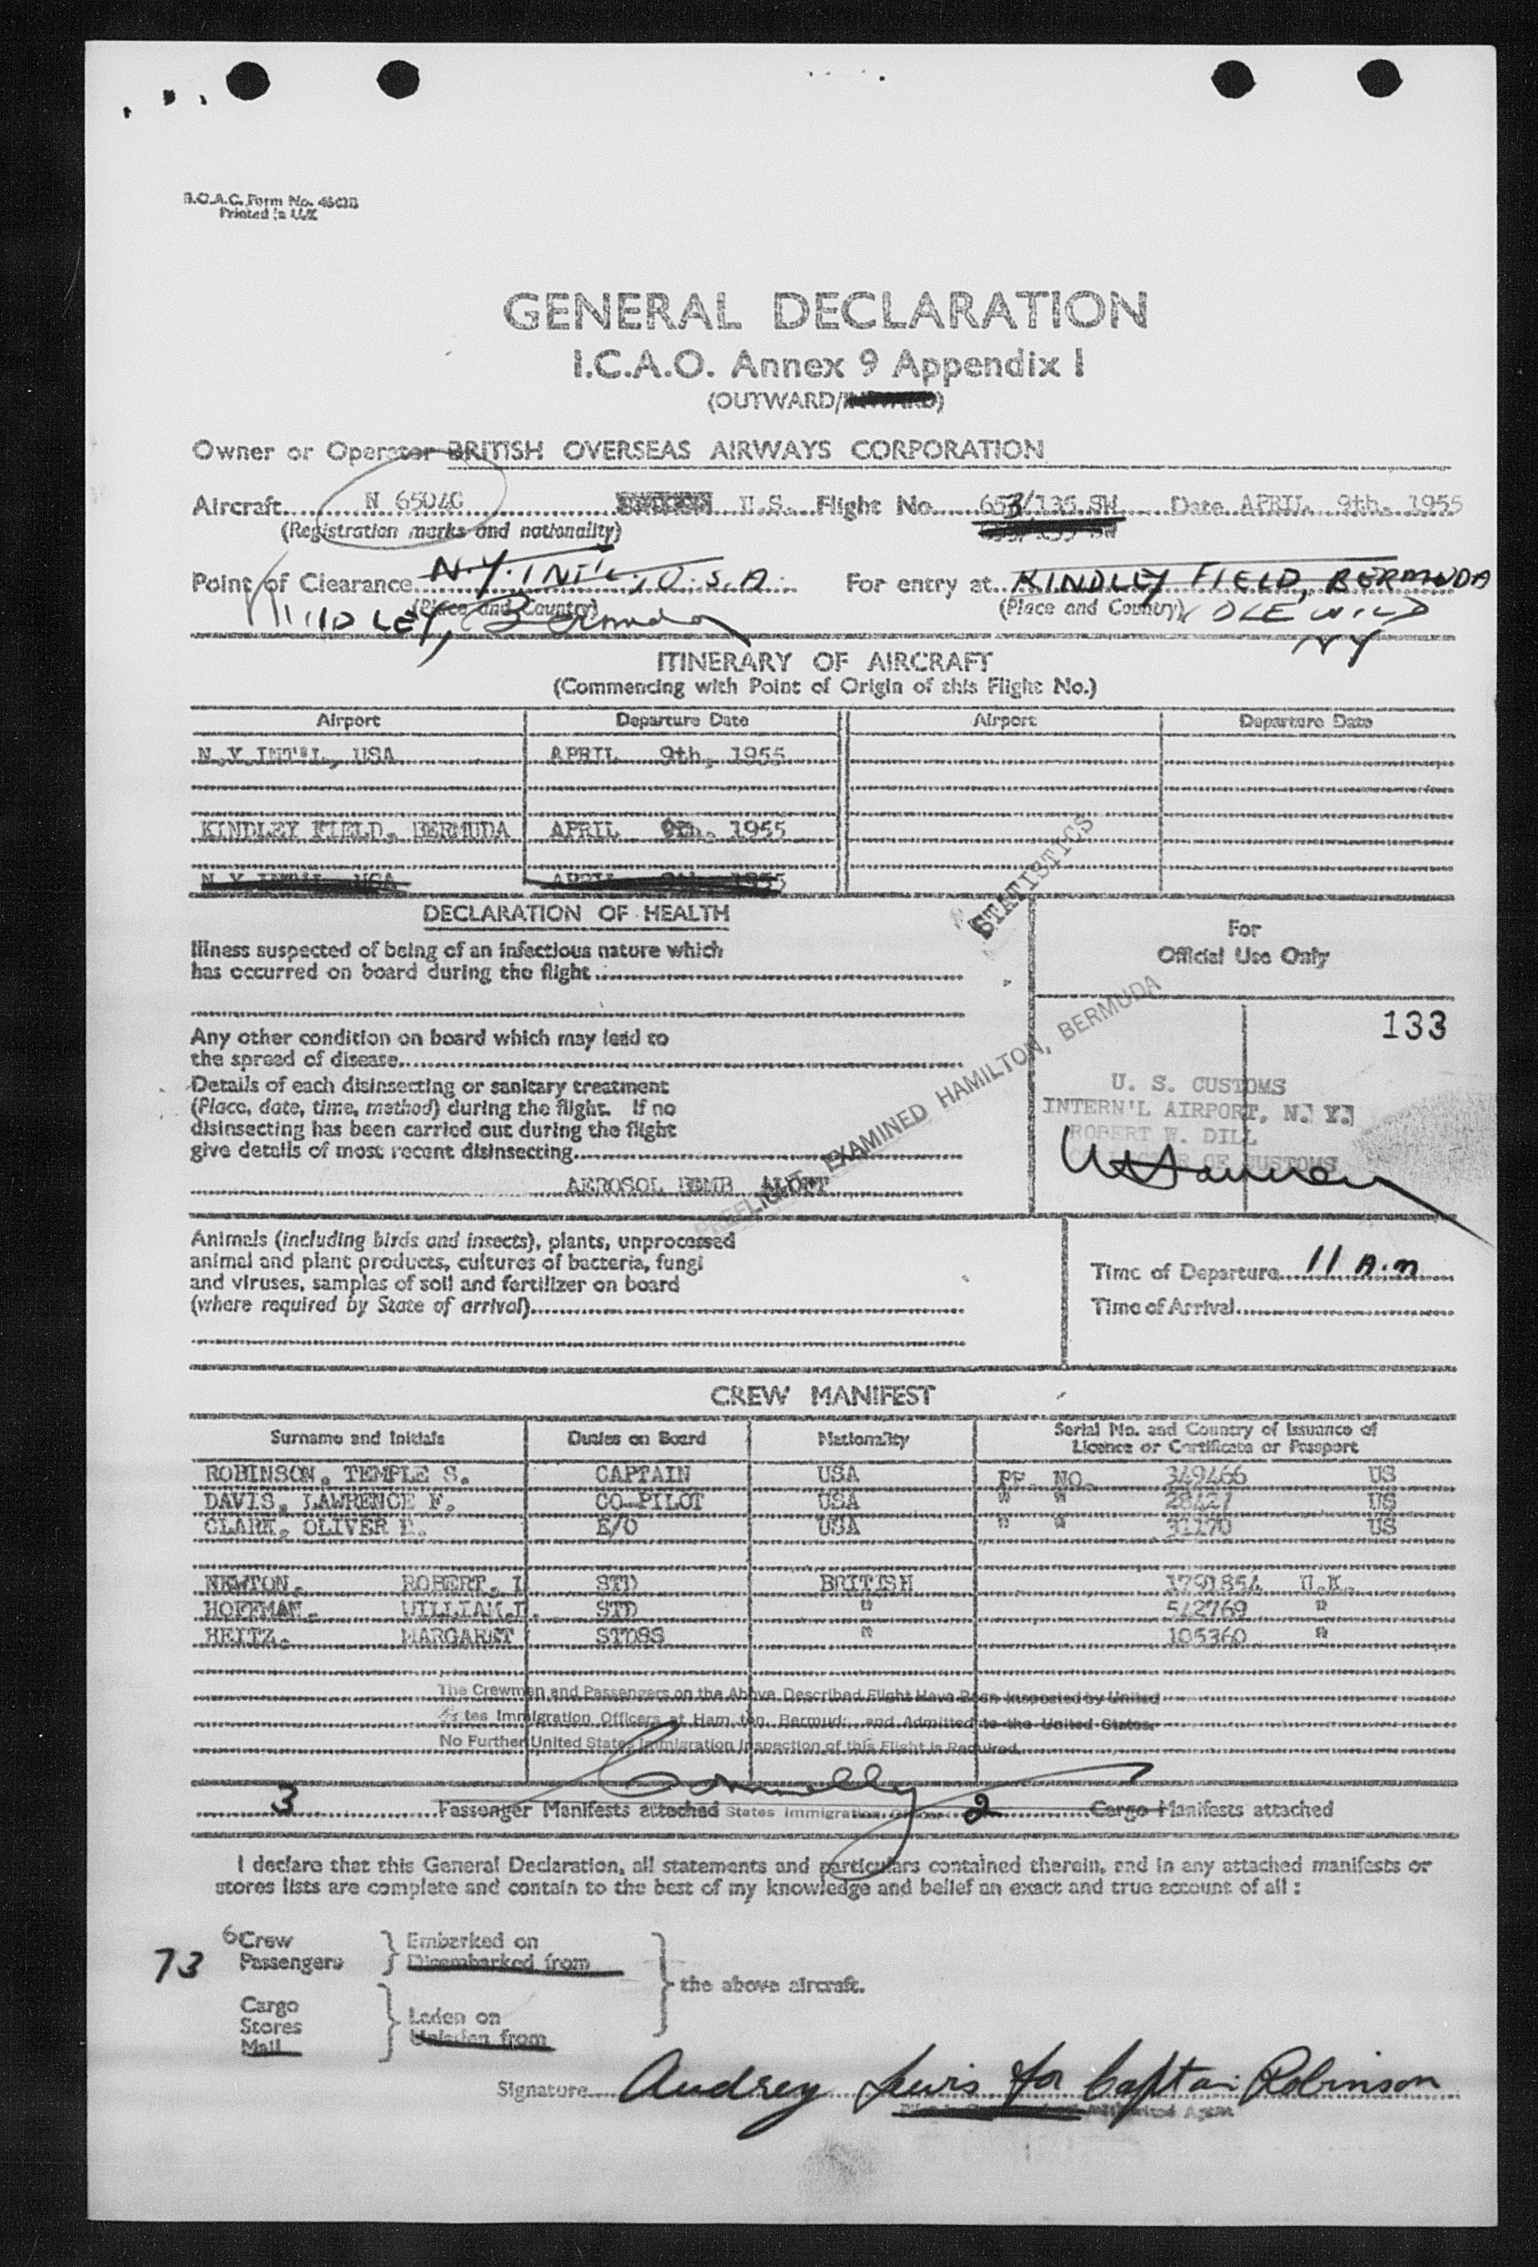 B.O.A.C. Form No.
Printed in U.K
GENERAL DECLARATION
I.C.A.O. Annex 9 Appendix I
(OUTWARD/INWARD)
Owner or Operator BRITISH OVERSEAS AIRWAYS CORPORATION
Aircraft N 6504C U.S. Flight No. 653/135 SW Date APRIL 9th. 1955
(Registration marks and nationality)
Point of Clearance N.Y. INT'L, U.S.A. For entry at KINDLEY FIELD, BERMUDA
(Place and Country) (Place and Country)
KINDLEY, Bermuda IDLEWILD
NY
ITINERARY OF AIRCRAFT
(Commencing with Point of Origin of this Flight No.)
Airport Departure Date Airport Departure Date
N.Y.INT'L, USA APRIL 9th, 1955
KINDLEY FIELD, BERMUDA APRIL 9th. 1955
N.Y INT'L, USA APRIL 9th, 1955
STATISTICS
DECLARATION OF HEALTH
Illness suspected of being of an infectious nature which
has occurred on board during the flight
Any other condition on board which may lead to
the spread of disease
Details of each disinsecting or sanitary treatment
(Place, date, time, method) during the flight. If no
disinsecting has been carried out during the flight
give details of most recent disinsecting
AEROSOL BOMB ALOFT
PREFLIGHT EXAMINED HAMILTON, BERMUDA
For
Official Use Only
133
U. S. CUSTOMS
INTERN'L AIRPORT, N. Y.
ROBERT W. DILL
COLLECTOR OF CUSTOMS
Animals (including birds and insects), plants, unprocessed
animal and plant products, cultures of bacteria, fungi
and viruses, samples of soil and fertilizer on board
(where required by State of arrival)
Time of Departure 11 A.M
Time of Arrival
CREW MANIFEST
Surname and Initials Duties on Board Nationality Serial No. and Country of Issuance of
Licence or Certificate or Passport
ROBINSON, TEMPLE S. CAPTAIN USA PP. NO. 349466 US
DAVIS, LAWRENCE F. CO-PILOT USA " " 28427 US
CLARK, OLIVER E/O USA " " 31170 US
NEWTON. ROBERT. I STD BRITISH 1791854 U.K.
HOFFMAN. WILLIAM. STD " 542769 "
HEITZ. MARGARET STDSS " 105360 "
The Crewmen and Passengers on the Above Described Flight Have Been Inspected by United
States Immigration Officers at Hamilton, Bermuda, and Admitted to the United States.
No Further United States Immigration Inspection of this Flight is Required.
Connelly
3 Passenger Manifests attached States Immigration Officer 2 Cargo Manifests attached
I declare that this General Declaration, all statements and particulars contained therein, and in any attached manifests or
stores lists are complete and contain to the best of my knowledge and belief an exact and true account of all :
6 Crew Embarked on
73 Passengers Disembarked from
the above aircraft.
Cargo Laden on
Stores Unladen from
Mail
Signature Audrey Lewis for Captain Robinson
Authorised Agent